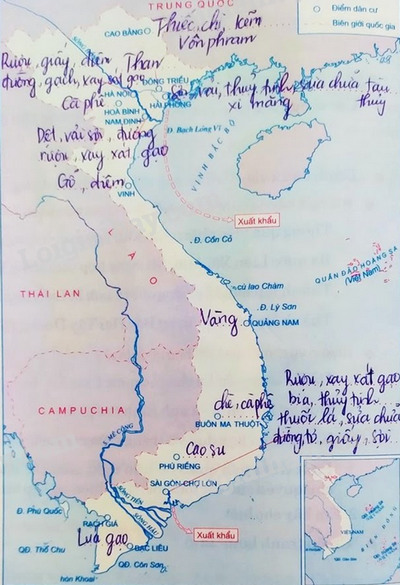 TRUNG QUỐC
Điểm dân cư
Biên giới quốc gia
CAO BẰNG
Thiếc, chì, kẽm
Vônphram
Rượu, giấy, diêm, Than
đường, gạch, xay xát gạo
ĐÔNG TRIỀU
HÀ NỘI
HẢI PHÒNG
vải, thuỷ tinh, sửa chữa tàu
xi măng
thuỷ
Cà phê
HOÀ BÌNH
NAM ĐỊNH
Đ. Bạch Long Vĩ
VỊNH BẮC BỘ
Dệt, vải sợi, đường
rượu, xay xát gạo
Gỗ, diêm
VINH
Xuất khẩu
LÀO
Đ. Cồn Cỏ
QUẦN ĐẢO HOÀNG SA
(Việt Nam)
THÁI LAN
cù lao Chàm
Đ. Lý Sơn
Vàng
QUẢNG NAM
CAMPUCHIA
S. MÊ CÔNG
chè, cà phê
BUÔN MA THUỘT
Rượu, xay xát gạo
bia, thủy tinh
thuốc lá, sửa chữa
giấy, sợi
Cao su
PHÚ RIỀNG
SÀI GÒN-CHỢ LỚN
SÔNG TIỀN
SÔNG HẬU
Đ. Phú Quốc
RẠCH GIÁ
Xuất khẩu
Lúa gạo
BẠC LIÊU
QĐ. Thổ Chu
QĐ. Côn Sơn
hòn Khoai
VIỆT NAM